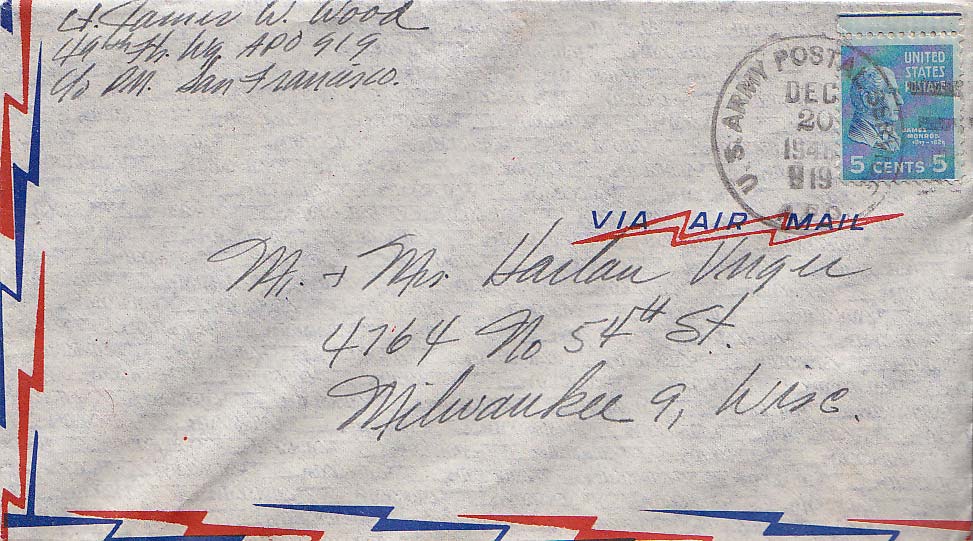 Lt. James W. Wood
49th Ftr. APO 919
c/o PM. San Francisco.
U.S. ARMY POSTAL
DEC
20
919
A.P.O.
UNITED
STATES
POSTAGE
JAMES
MONROE
1817-1825
5 CENTS 5
VIA AIR MAIL
Mr. + Mrs Harlan Unger
4764 No 54th St.
Milwaukee 9, Wisc.